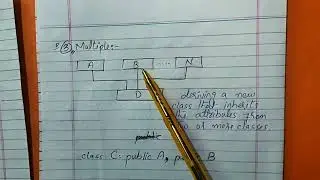 ③ Multiple:-
A B ..... N
D
deriving a new
class that inherits
the attributes from
two or more classes.
class C: public A, public B